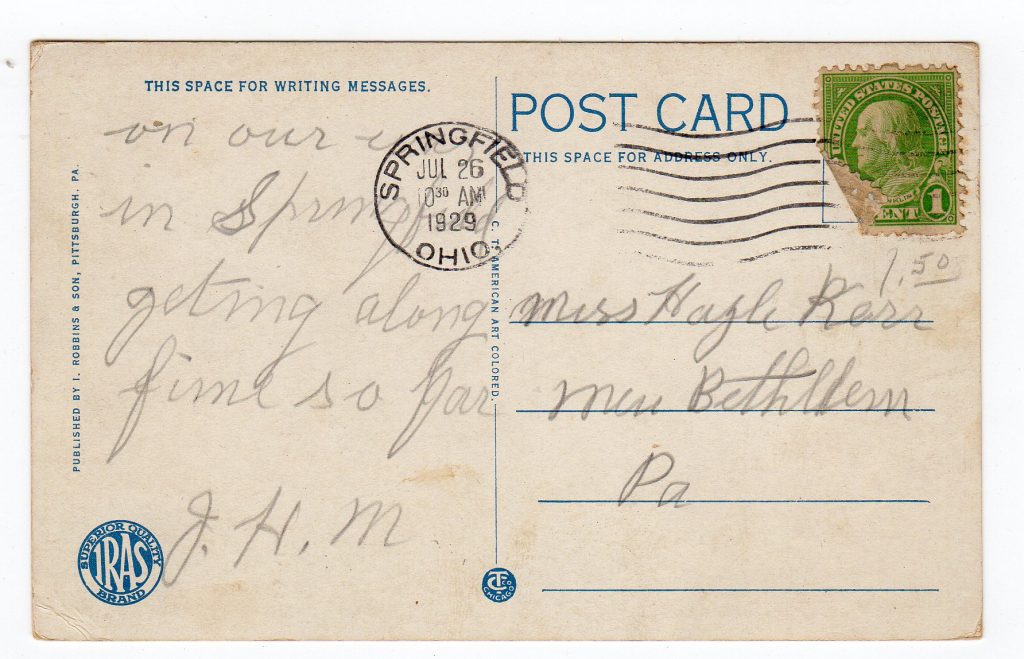 THIS SPACE FOR WRITING MESSAGES.
on our way
in Springfield
geting along
fime so far
J. H. M
PUBLISHED BY I. ROBBINS & SON, PITTSBURGH, PA.
SUPERIOR QUALITY
IRAS
BRAND
SPRINGFIELD
JUL 26
10 30 AM
1929
OHIO.
C. T. AMERICAN ART COLORED.
POST CARD
THIS SPACE FOR ADDRESS ONLY.
UNITED STATES POSTAGE
CENT 1
1.50
Miss Hazle Karr
New Bethlhem
Pa
CTCO
CHICAGO